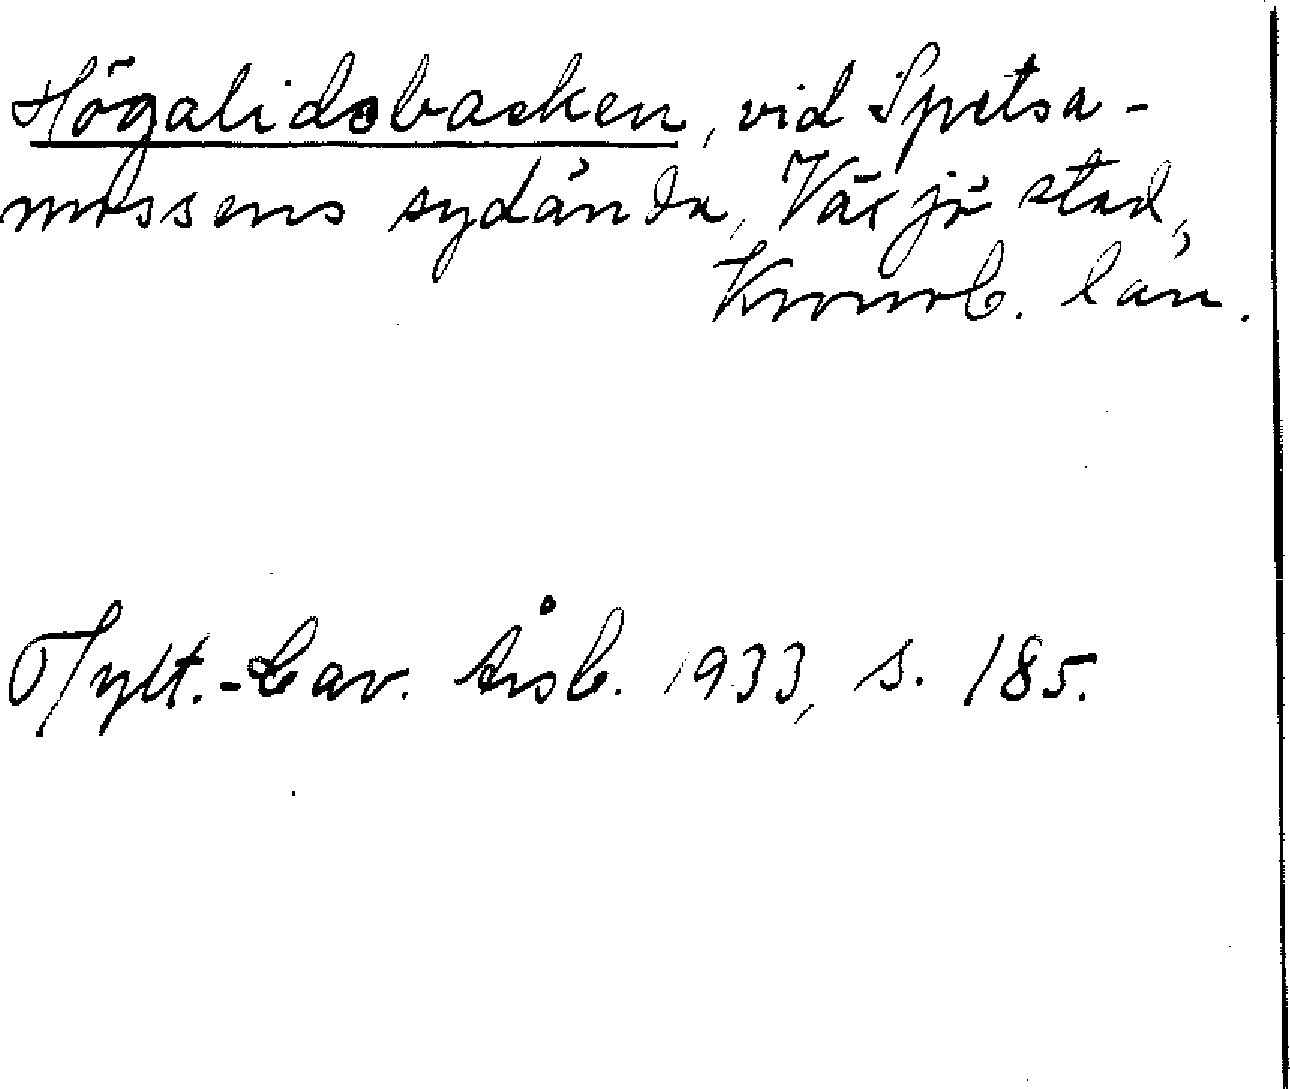 Högalidsbacken, vid Spetsa-
mossens sydända, Växjö stad,
Kronob. län.
Hylt.-Cav. Årsb. 1933, s. 185.